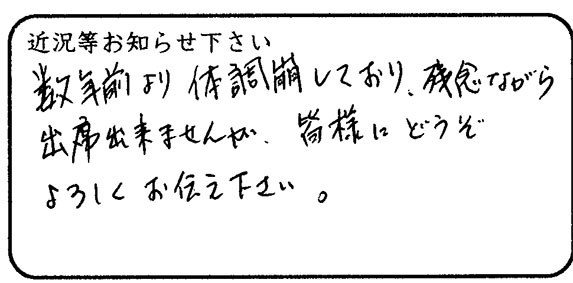 近況等お知らせ下さい
数年前より体調崩しており、残念ながら
出席出来ませんが、皆様にどうぞ
よろしくお伝え下さい。